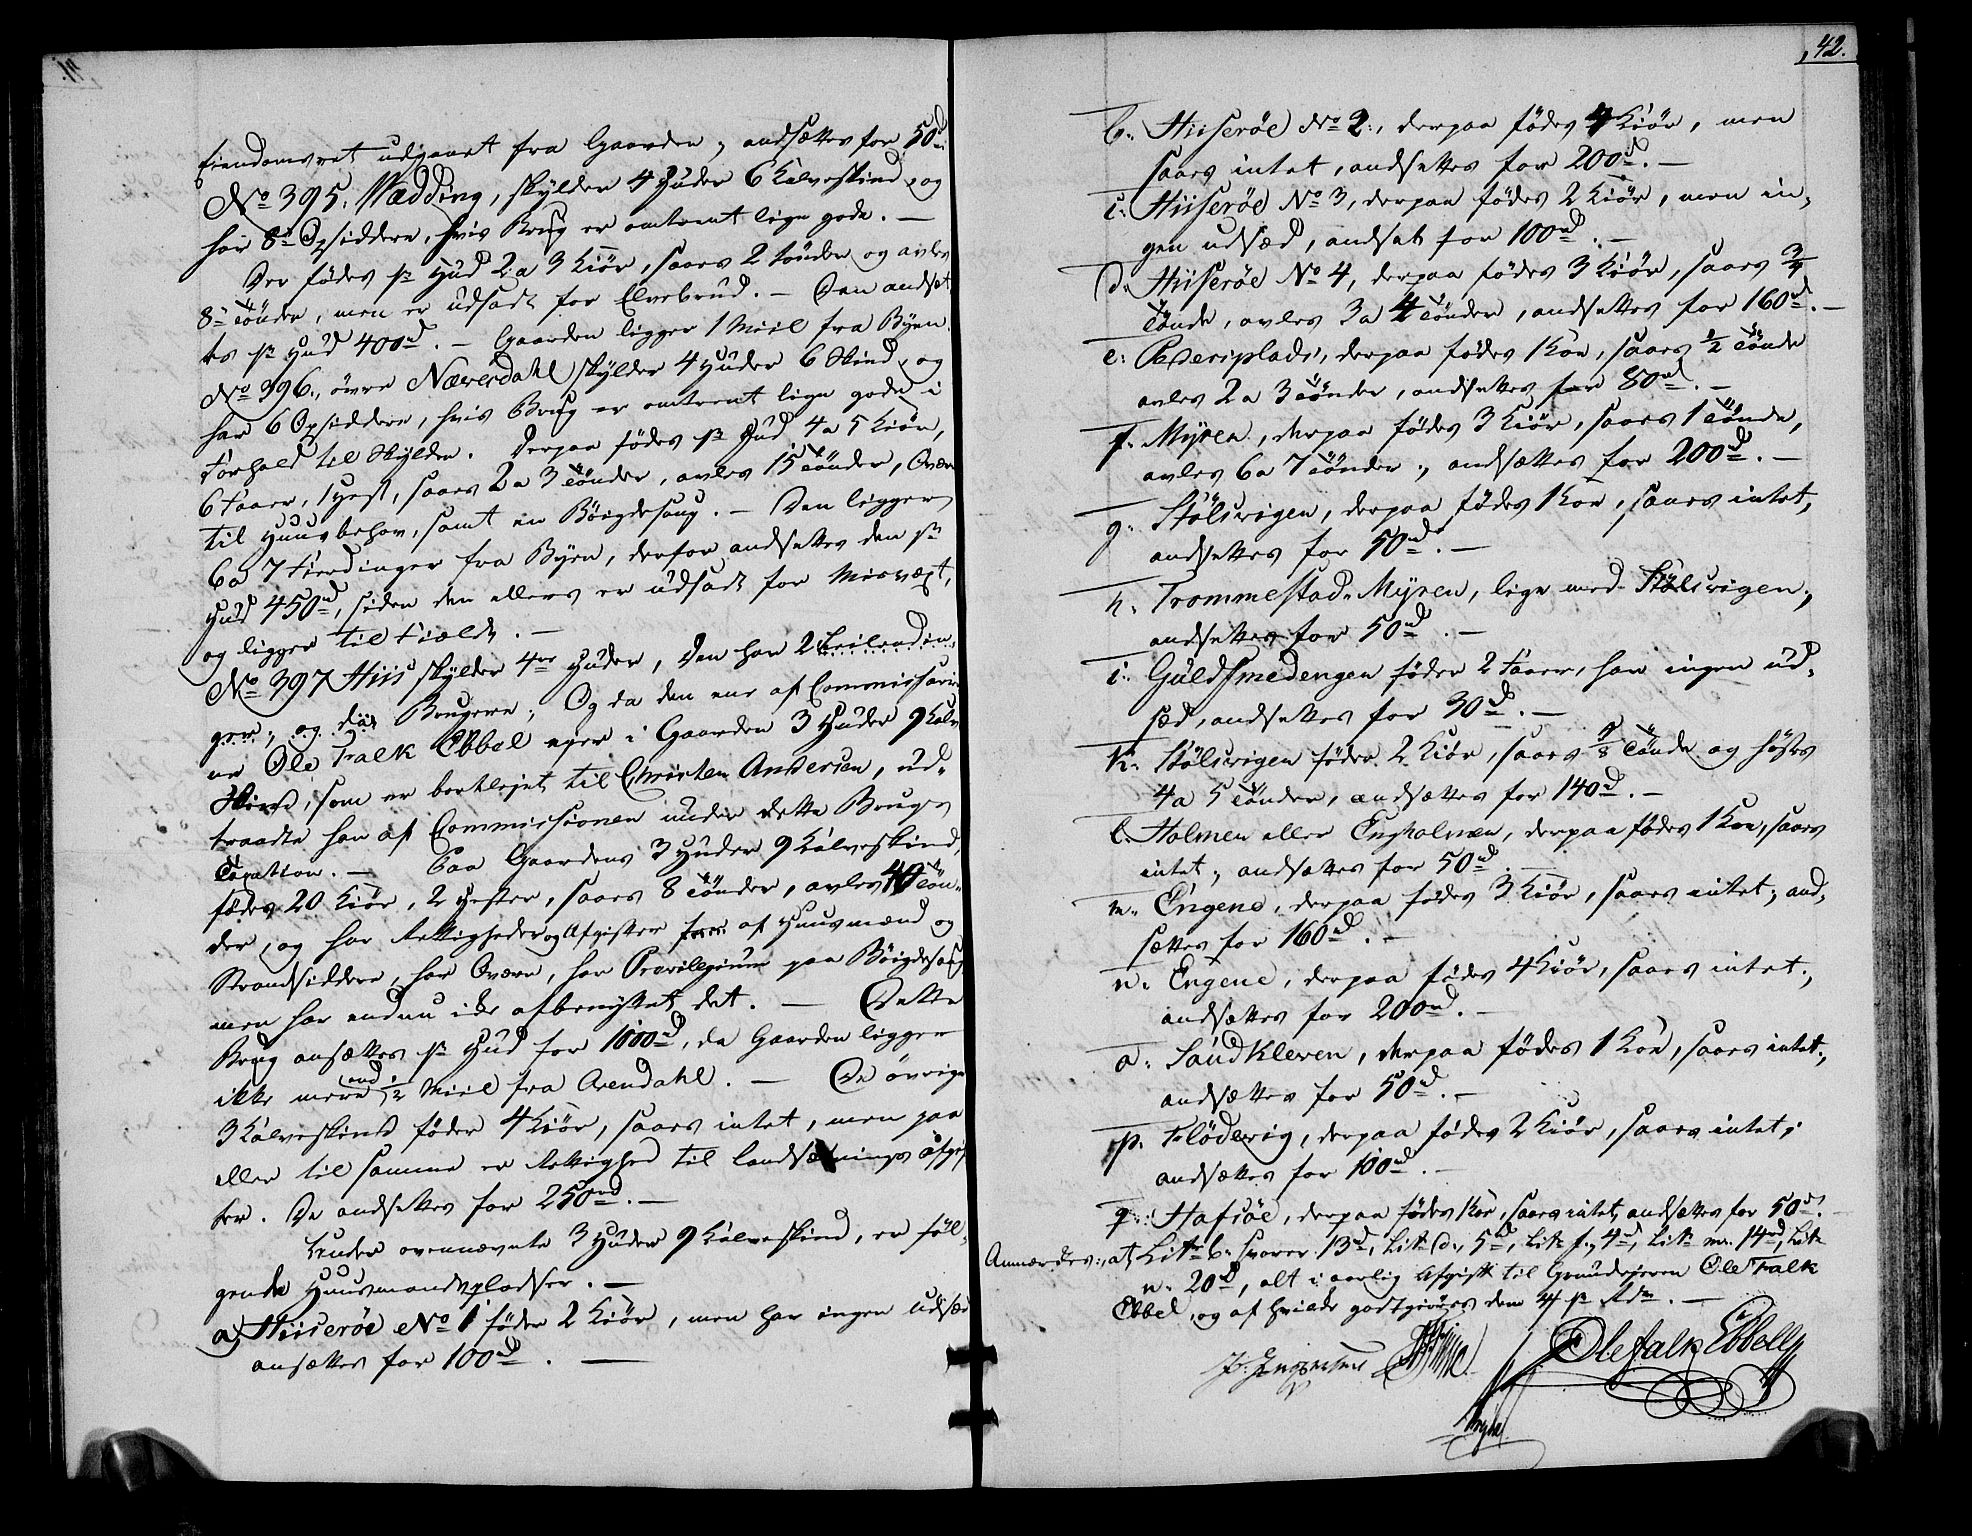 Eiendomsret udgaaet fra Gaarden, andsættes for 50rd
No 395. Nædding, skylder 4 Huder 6 Kalveskind, og
har 8te Opsiddere, hvis Brug er omtrent lige gode. —
Der fødes pr Hud 2 a 3 Kiör, saaes 2 tönder og avles
8te Tönder, men er udsadt for Elvebrud. — Den andsæt
tes pr Hud 400rd. — Gaarden ligger 1 Miil fra Byen.
No 396., övre Næversdahl skylder 4 Huder 6 Skind, og
har 6 Opsiddere, hvis Brug er omtrent lige gode i
Forhold til Skylden. Derpaa födes pr Hud 4 a 5 Kiör,
6 Faaer, 1 Hest, saaes 2 a 3 Tönder, avles 15 Tönder, Qværn
til Huusbehov, samt en Böigdesaug. — Den ligger
6 a 7 Fierdinger fra Byen, derfor andsettes den pr
Hud 450rd, siden den ellers er udsadt for Misvæxt,
og ligger til Fields. —
No 397 Hiis skylder 4re Huder, den har 2 Leilændin,
ger, og Brugere; Og da den ene af Commissairer
ne Ole Falk Ebbel eyer i Gaarden 3 Huder 9 Kalv
Skind, som er bortlejet til Christen Andersen, ud,
traadte han af Commissionen under dette Brugs
Taxation. — Paa Gaardens 3 Huder 9 Kalveskind,
födes 20 Kiör, 2 Hester, saaes 8 Tönder, avles 40 Tön,
der, og har Rettigheder og Afgifter af Huusmænd og
Strandsiddere, har Qværn, har Privilegium paa Böigdesaug
men har endnu ikke afbenyttet det. — Dette
Brug ansættes pr Hud for 1000rd, da Gaarden ligger
ikke mere end 1/2 Miil fra Arendahl. — De övrige
3 Kalveskind föder 4 Kiör, saaes intet, men paa
eller til samme er Rettighed til Landsætnings Afgif
ter. De andsettes for 250rd. —
Under ovennævnte 3 Huder 9 Kalveskind, er föl,
gende Huusmandspladser. —
a) Hiiseröe No 1 föder 2 Kiör, men har ingen Udsæd
ansættes for 100rd. —
42.
b. Hiiseröe No 2., derpaa födes 4 Kiör, men
saaes intet, andsettes for 200rd. —
c. Hiiseröe No 3, derpaa födes 2 Kiör, men in,
gen udsæd, andsat for 100rd. —
d. Hiiseröe No 4, derpaa födes 3 Kiör, saaes 3/4
Tönde, avles 3 a 4 Tönder, andsettes for 160rd. —
e. Pedersplads, derpaa födes 1 Koe, saaes 1/2 Tönde
avles 2 a 3 Tönder, andsettes for 80rd. —
f. Myren, derpaa födes 3 Kiör, saaes 1 Tönde,
avles 6 a 7 Tönder, andsættes for 200rd. —
g. Stölsvigen, derpaa födes 1 Koe, saaes intet,
andsettes for 50rd. —
h. Trommestad-Myren, lige med Stölsvigen,
andsettes for 50rd. —
i. Guldsmedengen föder 2 Faaer, har ingen ud,
sæd, andsettes for 30rd. —
k. Stölsvigen föder 2 Kiör, saaes Tönde og höstes
4 a 5 Tönder, andsættes for 140rd. —
l. Holmen eller Engholmen, derpaa födes 1 Koe, saaes
intet, andsættes for 50rd. —
m. Engene, derpaa födes 3 Kiör, saaes intet, and,
sættes for 160rd. —
n. Engene, derpaa födes 4 Kiör, saaes intet,
andsættes for 200rd. —
o. Sandkleven, derpaa födes 1 Koe, saaes intet,
andsættes for 50rd. —
p. Flödevig, derpaa födes 2 Kiör, saaes intet,
andsættes for 100rd. —
q. Hafsöe, derpaa födes 1 Koe, saaes intet, andsættes for 50rd. —
Anmærkes, at Litr b. svarer 13rd, Litr d., 5rd, Litr f. 4rd, Litr m. 14rd, Litr
n. 20rd, alt i aarlig Afgift til Grundejeren Ole Falk
Ebbel, og af hvilke godtgiöres dem 4 pr
Ole Falk Ebbell